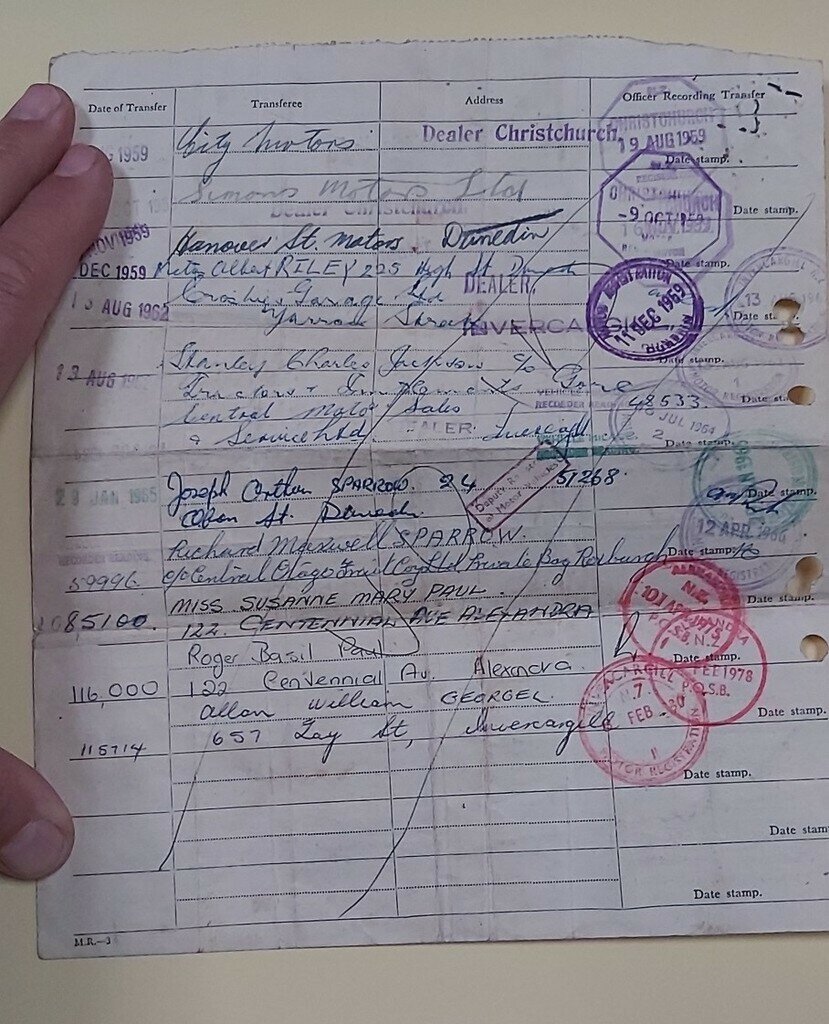 Date of Transfer Transferee Address Officer Recording Transfer
N.Z.
CHRISTCHURCH
1959 City Motors Dealer Christchurch 19 AUG 1959
Date stamp.
Simons Motors Ltd
Dealer Christchurch
CHRISTCHURCH
-9 OCT 1959 Date stamp.
16 NOV 1959
NOV 1959 Hanover St. Motors. Dunedin
DEC 1959 Albert RILEY 225 High St
11 DEC 1959
13 AUG 1962 Crosby Garage Ltd DEALER,
Yarrow Street INVERCARGILL
INVERCARGILL
13
13 AUG Stanley Charles Jackson c/o Date stamp.
Tractors + Implements Gore
48533. Date
Central Motor Sales RECORDER READING
& Service Ltd DEALER JUL 1964
2 Date stamp.
23 JAN 1965 Joseph Arthur SPARROW. 24 51268.
Date stamp.
St. Dunedin Deputy Registrar
Motor Vehicles
12 APR
RECORDER READING Richard Maxwell SPARROW. Date stamp.
59996 c/o Central Otago Fruit Coy Ltd Private Bag Roxburgh
MISS SUSANNE MARY PAUL. Date stamp.
85100. 122. CENTENNIAL AVE ALEXANDRA
ALEXANDRA
N.Z.
1975
P.O.S.B.
Roger Basil Paul Date stamp.
116,000 122 Centennial Av. Alexandra.
FEB 1978
P.O.S.B.
Allan William GEORGEL. Date stamp.
115714 657 Tay St, Invercargill
INVERCARGILL
N.Z.
FEB
MOTOR REGISTRATION
Date stamp.
Date stam
Date stamp.
M.R.—3